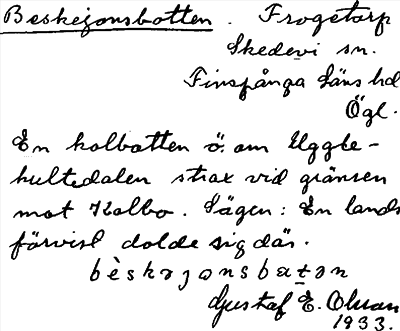 Beskejonsbotten. Frogetorp
Skedevi sn.
Finspånga läns hd
Ögl.
En kolbotten ö. om Uggle-
hultedalen strax vid gränsen
mot Kolbo. Sägen: En lands
förvisl dolde sig där.
bèskəjonsbɑtən
Gustaf E. Olsson
1933.